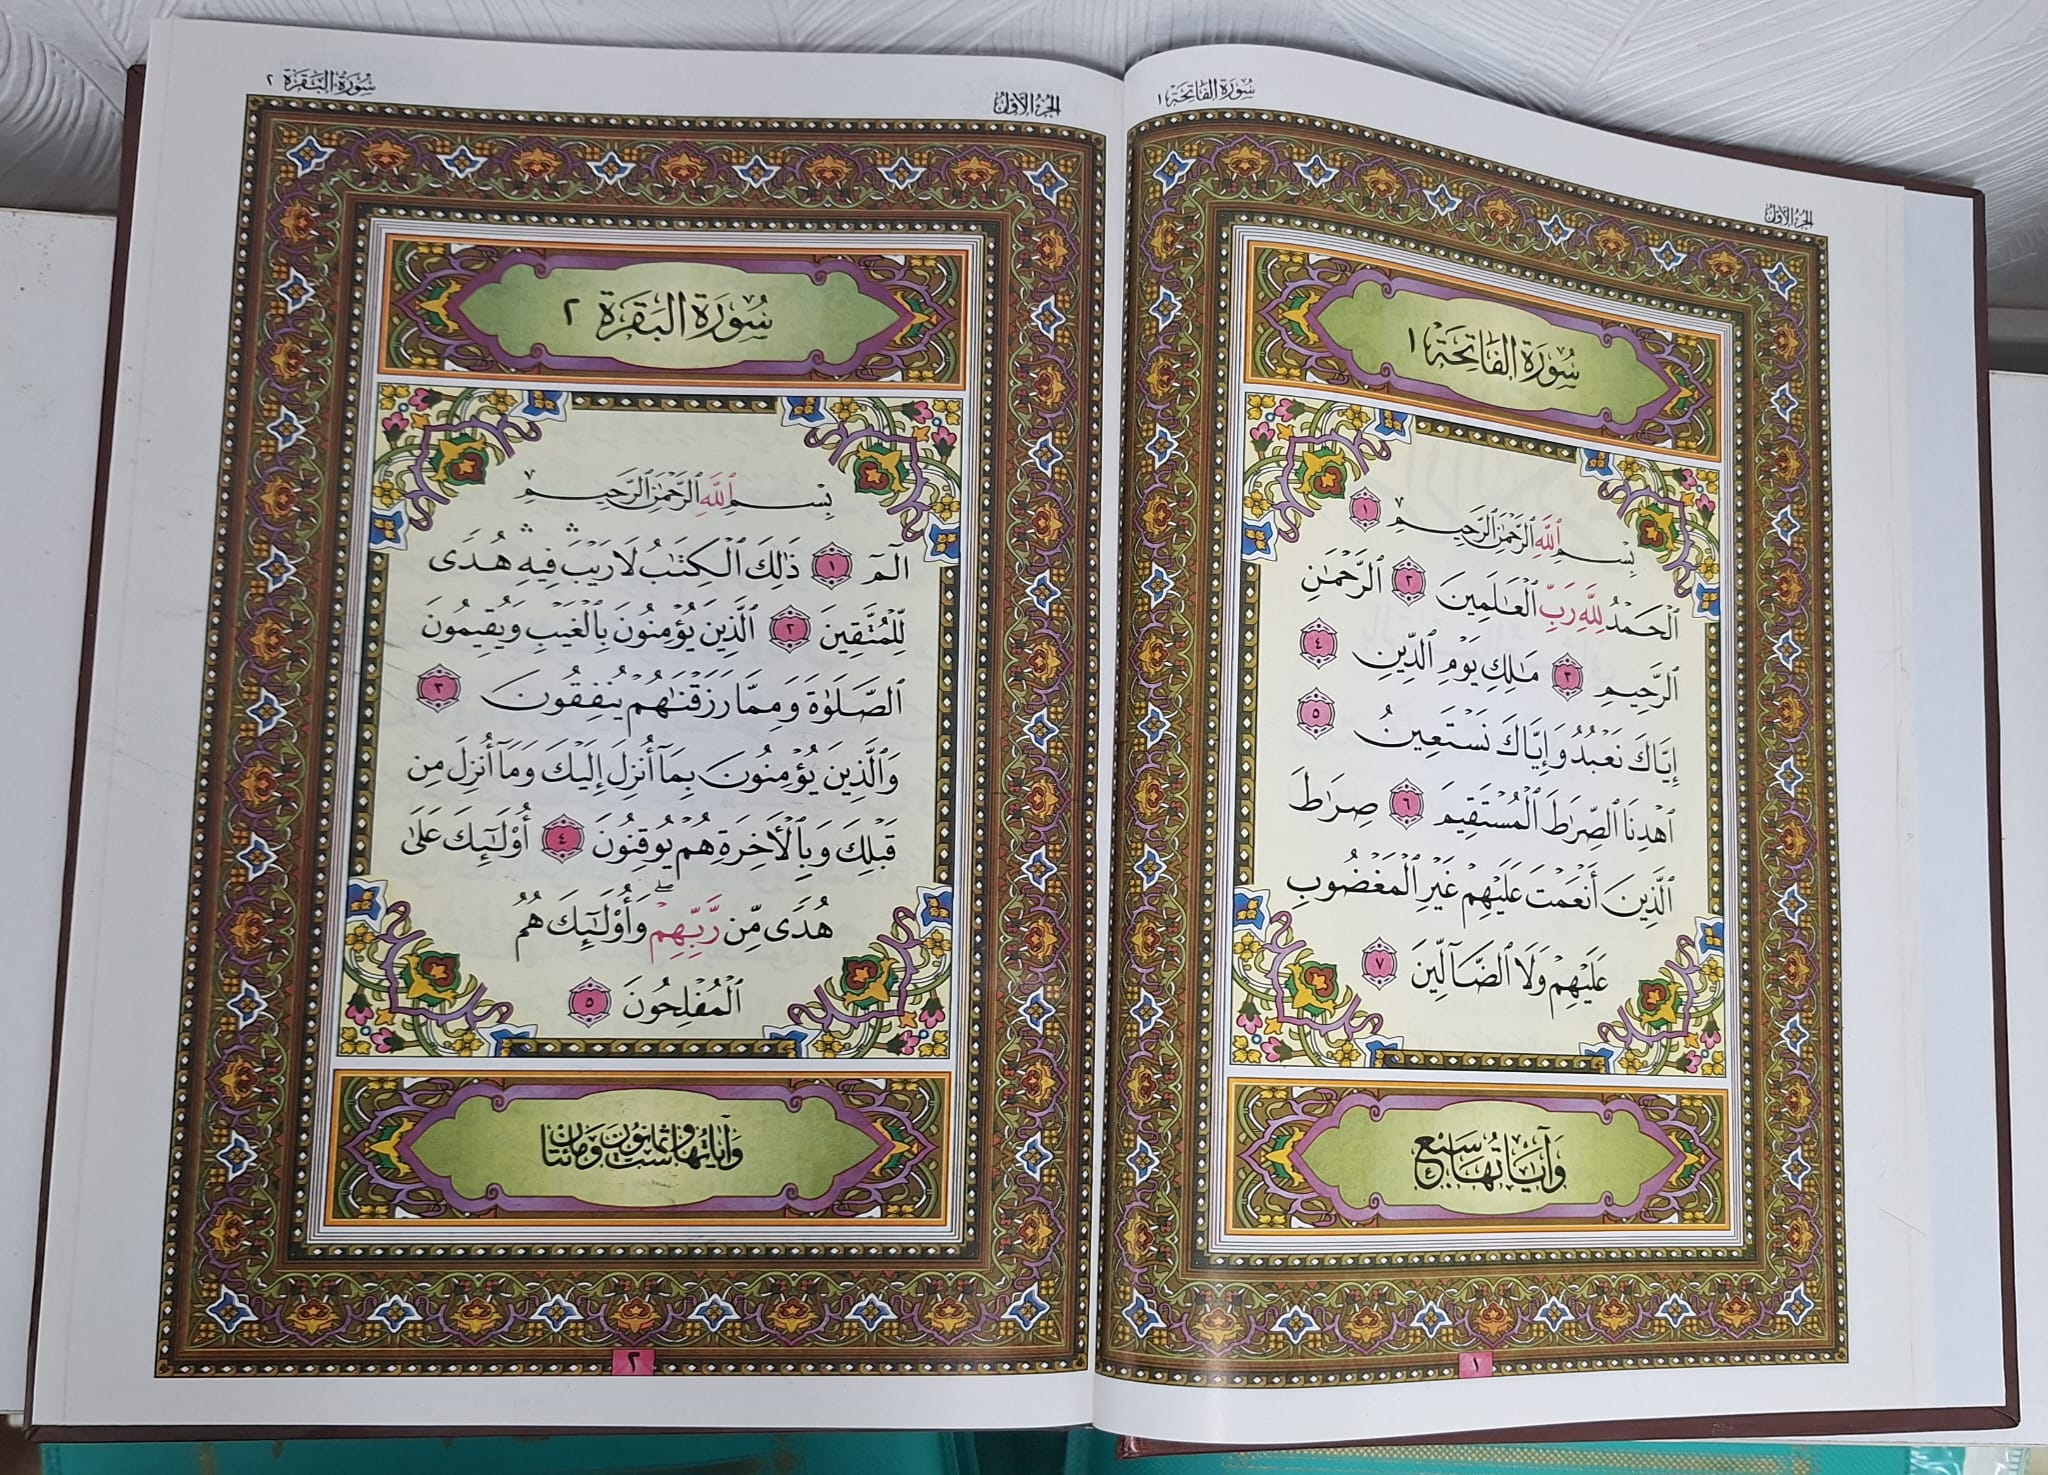 الجزء الأول
سورة الفاتحة ١
سُورَةُ الفَاتِحَة ١
بِسْمِ ٱللَّهِ ٱلرَّحْمَٰنِ ٱلرَّحِيمِ ١
ٱلْحَمْدُ لِلَّهِ رَبِّ ٱلْعَٰلَمِينَ ٢ ٱلرَّحْمَٰنِ
ٱلرَّحِيمِ ٣ مَٰلِكِ يَوْمِ ٱلدِّينِ ٤
إِيَّاكَ نَعْبُدُ وَإِيَّاكَ نَسْتَعِينُ ٥
ٱهْدِنَا ٱلصِّرَٰطَ ٱلْمُسْتَقِيمَ ٦ صِرَٰطَ
ٱلَّذِينَ أَنْعَمْتَ عَلَيْهِمْ غَيْرِ ٱلْمَغْضُوبِ
عَلَيْهِمْ وَلَا ٱلضَّآلِّينَ ٧
وَآيَاتُهَا سَبْعٌ
١
الجزء الأول
سورة البقرة ٢
سُورَةُ البَقَرَة ٢
بِسْمِ ٱللَّهِ ٱلرَّحْمَٰنِ ٱلرَّحِيمِ
الٓمٓ ١ ذَٰلِكَ ٱلْكِتَٰبُ لَا رَيْبَ ۛ فِيهِ ۛ هُدًى
لِّلْمُتَّقِينَ ٢ ٱلَّذِينَ يُؤْمِنُونَ بِٱلْغَيْبِ وَيُقِيمُونَ
ٱلصَّلَوٰةَ وَمِمَّا رَزَقْنَٰهُمْ يُنفِقُونَ ٣
وَٱلَّذِينَ يُؤْمِنُونَ بِمَآ أُنزِلَ إِلَيْكَ وَمَآ أُنزِلَ مِن
قَبْلِكَ وَبِٱلْأَخِرَةِ هُمْ يُوقِنُونَ ٤ أُوْلَٰٓئِكَ عَلَىٰ
هُدًى مِّن رَّبِّهِمْ ۖ وَأُوْلَٰٓئِكَ هُمُ
ٱلْمُفْلِحُونَ ٥
وَآيَاتُهَا سِتٌّ وَثَمَانُونَ وَمَائَتَان
٢